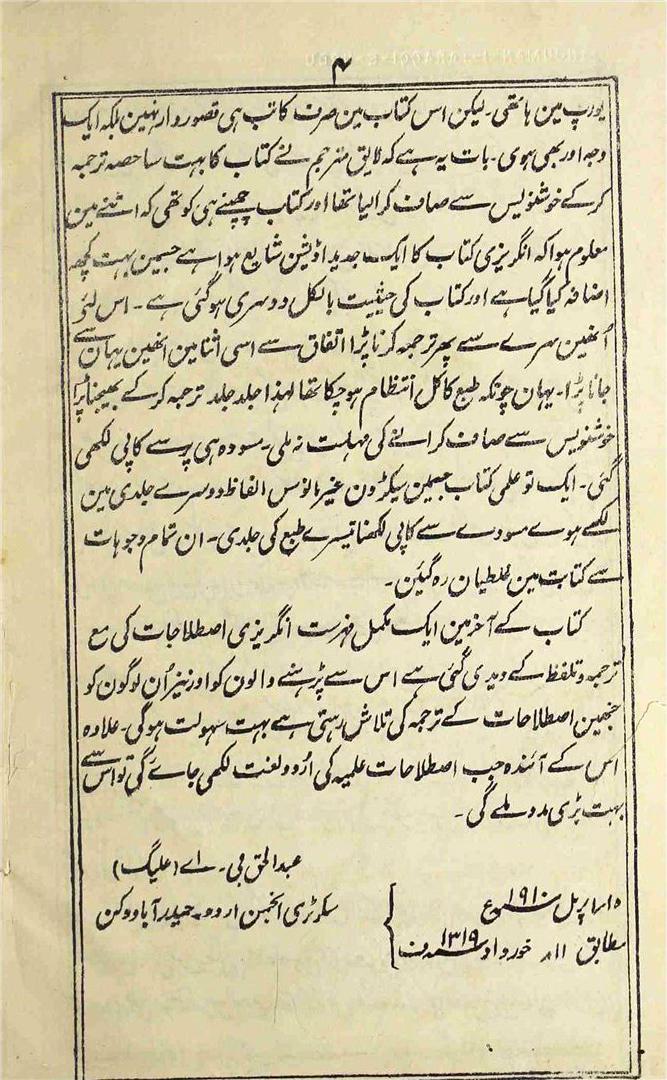 ۴
یورپ مین ہائتھی۔ لیکن اس کتاب مین صرف کاتب ہی قصوروار نہین بلکہ ایک
وجہ اور بھی ہوی۔ بات یہ ہے کہ لایق مترجم نے کتاب کا بہت ساحصہ ترجمہ
کرکے خوشنویس سے صاف کرالیا تھا اور کتاب چھپنے ہی کو تھی کہ اتنے مین
معلوم ہوا کہ انگریزی کتاب کا ایک جدید اڈیشن شایع ہوا ہے جسمین بہت کچھہ
اضافہ کیا گیا ہے اور کتاب کی حیثیت بالکل دوسری ہوگئی ہے۔ اس لئے
اُنھین سرے سے پھر ترجمہ کرنا پڑا اتفاق سے اسی اثنا مین انھین یہان سے
جانا پڑا۔ یہان چونکہ طبع کا کل انتظام ہوچکا تھا لہذا جلد جلد ترجمہ کرکے بھیجنا پڑا
خوشنویس سے صاف کرانے کی مہلت نہ ملی۔ مسودہ ہی پر سے کاپی لکھی
گئی۔ ایک تو علمی کتاب جسمین سیکڑون غیر مانوس الفاظ دوسرے جلدی مین
لکھے ہوے مسودے سے کاپی لکھنا تیسرے طبع کی جلدی۔ ان تمام وجوہات
سے کتابت مین غلطیان رہ گئین۔
کتاب کے آخر مین ایک مکمل فہرست انگریزی اصطلاحات کی مع
ترجمہ و تلفظ کے دیدی گئی ہے اس سے پڑہنے والون کو اور نیز اُن لوگون کو
جنھین اصطلاحات کے ترجمہ کی تلاش رہتی ہے بہت سہولت ہوگی۔ علاوہ
اس کے آئندہ جب اصطلاحات علمیہ کی اُردو لغت لکھی جاے گی تو اس سے
بہت بڑی مدد ملے گی۔
عبدالحق بی۔ اے (علیگ)
سکرٹری انجمن اردو۔ حیدرآباد دکن
۱۵ اپریل سنہ ۱۹۱۰ع
مطابق ۱۱ خورداد سنہ ۱۳۱۹ ف